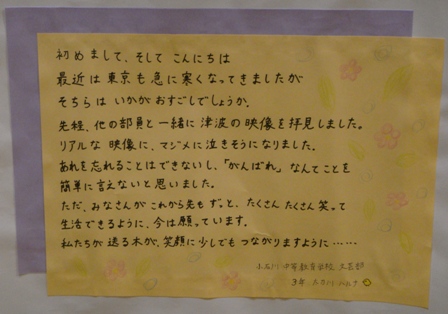 初めまして、そして こんにちは
最近は 東京も 急に 寒くなってきましたが
そちらは いかがおすごしでしょうか。
先程、他の部員と一緒に 津波の映像を拝見しました。
リアルな 映像に、マジメに泣きそうになりました。
あれを忘れることはできないし、「がんばれ」なんてことを
簡単に言えないと思いました。
ただ、みなさんが これから先も ずっと、たくさん たくさん 笑って
生活できるように、今は 願っています。
私たちが 送る本が、笑顔に少しでも つながりますように……
小石川 中等教育学校 文芸部
3年